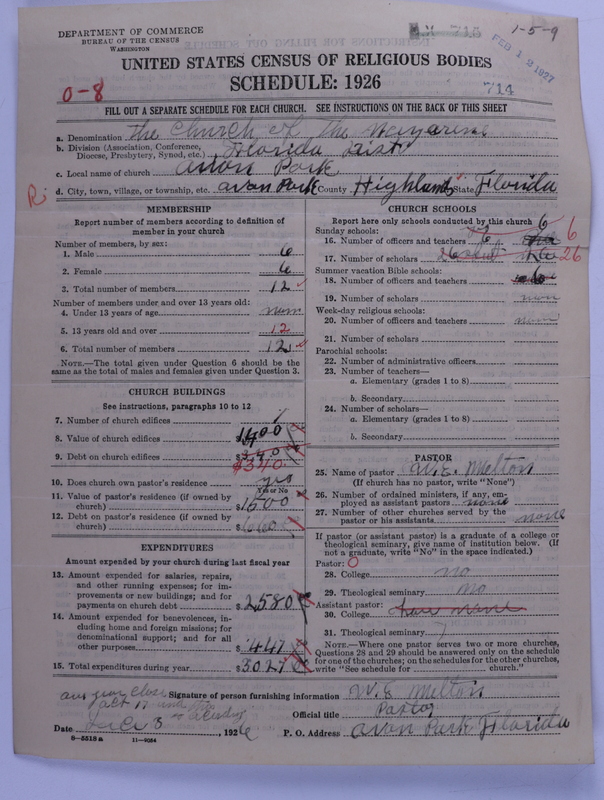 DEPARTMENT OF COMMERCE
BUREAU OF THE CENSUS
WASHINGTON
1-5-9
FEB 12 1927
UNITED STATES CENSUS OF RELIGIOUS BODIES
SCHEDULE: 1926
0-8
714
FILL OUT A SEPARATE SCHEDULE FOR EACH CHURCH. SEE INSTRUCTIONS ON THE BACK OF THIS SHEET
a. Denomination The Church of The Nazarene
b. Division (Association, Conference, Diocese, Presbytery, Synod, etc.) Florida Dist
c. Local name of church Avon Park
d. City, town, village, or township, etc. Avon Park County Highlands State Florida
MEMBERSHIP
Report number of members according to definition of member in your church
Number of members, by sex:
1. Male 6
2. Female 6
3. Total number of members 12
Number of members under and over 13 years old:
4. Under 13 years of age none
5. 13 years old and over 12
6. Total number of members 12
NOTE.—The total given under Question 6 should be the same as the total of males and females given under Question 3.
CHURCH BUILDINGS
See instructions, paragraphs 10 to 12
7. Number of church edifices 1
8. Value of church edifices $1400
9. Debt on church edifices $340
$340
10. Does church own pastor's residence? yes
Yes or No
11. Value of pastor's residence (if owned by church) $1500
12. Debt on pastor's residence (if owned by church) $660
EXPENDITURES
Amount expended by your church during last fiscal year
13. Amount expended for salaries, repairs, and other running expenses; for improvements or new buildings; and for payments on church debt $2580
14. Amount expended for benevolences, including home and foreign missions; for denominational support; and for all other purposes $447
15. Total expenditures during year $3027
CHURCH SCHOOLS
Report here only schools conducted by this church
Sunday schools:
16. Number of officers and teachers 6
17. Number of scholars 26
Summer vacation Bible schools:
18. Number of officers and teachers
19. Number of scholars none
Week-day religious schools:
20. Number of officers and teachers none
21. Number of scholars
Parochial schools:
22. Number of administrative officers
23. Number of teachers—
a. Elementary (grades 1 to 8)
b. Secondary
24. Number of scholars—
a. Elementary (grades 1 to 8)
b. Secondary
PASTOR
25. Name of pastor W.E. Melton
(If church has no pastor, write "None")
26. Number of ordained ministers, if any, employed as assistant pastors none
27. Number of other churches served by the pastor or his assistants none
If pastor (or assistant pastor) is a graduate of a college or theological seminary, give name of institution below. (If not a graduate, write "No" in the space indicated.)
Pastor: 0
28. College no
29. Theological seminary No
Assistant pastor:
30. College have none
31. Theological seminary
NOTE.—Where one pastor serves two or more churches, Questions 28 and 29 should be answered only on the schedule for one of the churches; on the schedules for the other churches, write "See schedule for church."
our year close
Signature of person furnishing information W. E Melton
Official title Pastor
Date Dec 3, 1926
P. O. Address Avon Park Florida
8-5518a
11-9054